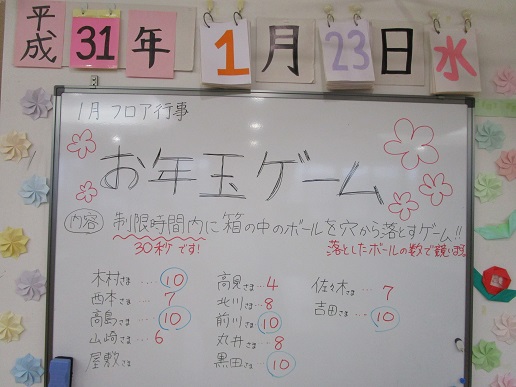 平成31年1月23日水
1月フロア行事
お年玉ゲーム
内容 制限時間内に箱の中のボールを穴から落とすゲーム!!
30秒です! 落としたボールの数で競い
木村さま…10 高見さま…4 佐々木さま…7
西本さま…7 北川さま…8 吉田さま…10
高島さま…10 前川さま…10
山崎さま…6 丸井さま…8
屋敷さま 黒田さま…10